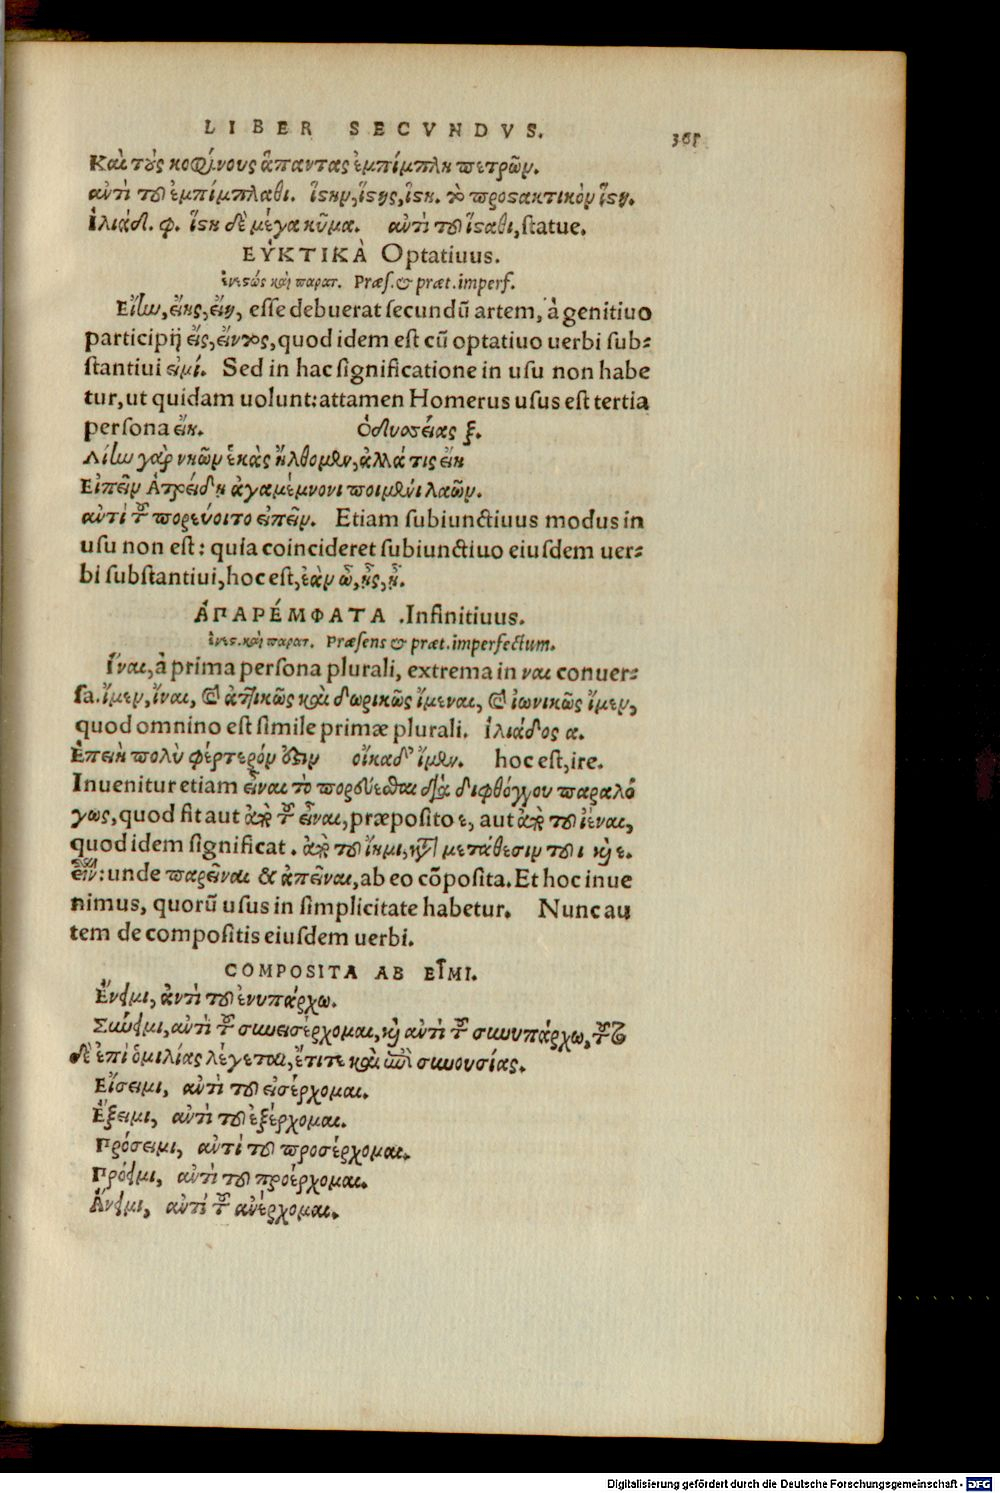 LIBER SECVNDVS. 365
Καὶ τοὺς κοφίνους ἅπαντας ἐμπίμπλη πετρῶν.
αὐτὶ τοῦ ἐμπίμπλαθι. ἵστην, ἵστης, ἵστη. τὸ προστακτικὸν ἵστη.
ἰλιάδ. φ. ἵστη δὲ μέγα κῦμα. αὐτὶ τοῦ ἵσταθι, statue.
ΕΥ̓ΚΤΙΚᾺ Optatiuus.
ἐνεστὼς καὶ παρατ. Præs. & præt. imperf.
Εἴην, εἴης, εἴη, esse debuerat secundū artem, à genitiuo
participij εἴς, ἔιντος, quod idem est cū optatiuo uerbi sub-
stantiui εἰμί. Sed in hac significatione in usu non habe
tur, ut quidam uolunt: attamen Homerus usus est tertia
persona εἴη. Ὀδυσσείας ξ.
Λίην γὰρ νηῶν ἑκὰς ἤλθομεν, ἀλλά τις εἴη
Εἰπεῖν Ἀτρείδῃ ἀγαμέμνονι ποιμένι λαῶν.
αὐτὶ τοῦ πορεύοιτο εἰπεῖν. Etiam subiunctiuus modus in
usu non est: quia coincideret subiunctiuo eiusdem uer-
bi substantiui, hoc est, ἐὰν ὦ, ᾖς, ᾖ.
ἈΠΑΡΈΜΦΑΤΑ .Infinitiuus.
ἐνεσ. καὶ παρατ. Præsens & præt. imperfectum.
ἴναι, à prima persona plurali, extrema in ναι conuer-
sa. ἴμεν, ἴναι, & ἀττικῶς καὶ δωρικῶς ἴμεναι, & ἰωνικῶς ἴμεν,
quod omnino est simile primæ plurali. ἰλιάδος α.
Ἐπειὴ πολὺ φέρτερόν ἐστιν οἴκαδ' ἴμεν. hoc est, ire.
Inuenitur etiam εἶναι τὸ πορεύεσθαι διὰ διφθόγγου παραλό
γως, quod fit aut ἀπὸ τοῦ εἶναι, præposito ε, aut ἀπὸ τοῦ ἰέναι,
quod idem significat. ἀπὸ τοῦ ἴημι, κατὰ μετάθεσιν τοῦ ι καὶ ε.
εἶν: unde παρεῖναι & ἀπεῖναι, ab eo cōposita. Et hoc inue
nimus, quorū usus in simplicitate habetur. Nunc au
tem de compositis eiusdem uerbi.
COMPOSITA AB ΕἾΜΙ.
Ἔνειμι, ἀντὶ τοῦ ἐνυπάρχω.
Σύνειμι, αὐτὶ τοῦ συνεισέρχομαι, καὶ αὐτὶ τοῦ συνυπάρχω, τοῦτο
δὲ ἐπὶ ὁμιλίας λέγεται, ἔτι τε καὶ ἐπὶ συνουσίας.
Εἴσειμι, αὐτὶ τοῦ εἰσέρχομαι.
Ἔξειμι, αὐτὶ τοῦ ἐξέρχομαι.
Πρόσειμι, αὐτί τοῦ προσέρχομαι.
Πρόειμι, αὐτὶ τοῦ προέρχομαι.
Ἄνειμι, αὐτί τοῦ ἀνέρχομαι.
Digitalisierung gefördert durch die Deutsche Forschungsgemeinschaft - DFG